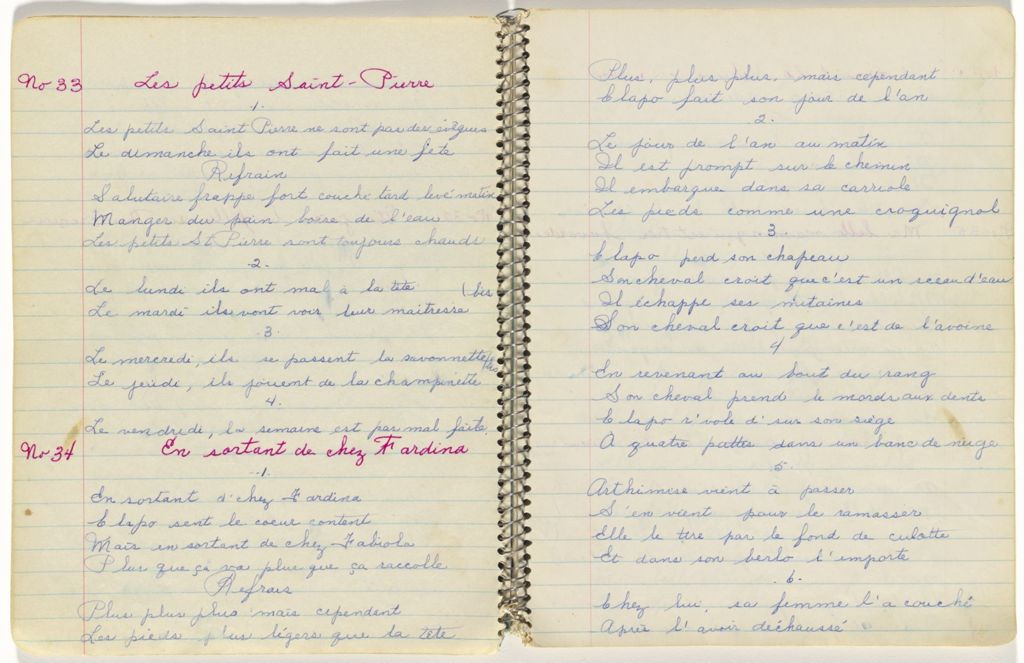 No 33 Les petits Saint-Pierre
1.
Les petits Saint Pierre ne sont pas des évêques
Le dimanche ils ont fait une fête
Refrain
Salutaire frappe fort couche tard levé matin
Manger du pain boire de l'eau
Les petits St Pierre sont toujours chauds
2.
Le lundi ils ont mal à la tête (bis
Le mardi ils vont voir leur maitresse
3.
Le mercredi, ils se passent la savonnette bis
Le jeudi, ils jouent de la champinette
4.
Le vendredi, la semaine est pas mal faite.
No 34 En sortant de chez Fardina
1.
En sortant d'chez Fardina
Elapo sent le coeur content
Mais en sortant de chez Fabiola
Plus que ça va plus que ça raccolle
Refrais
Plus plus plus mais cependant
Les pieds plus légers que la tête
Plus, plus plus, mais cependant
Elapo fait son jour de l'an
2.
Le jour de l'an au matin
Il est prompt sur le chemin
Il embarque dans sa carriole
Les pieds comme une croquignol
3.
Elapo perd son chapeau
Son cheval croit que c'est un sceau d'eau
Il échappe ses mitaines
Son cheval croit que c'est de l'avoine
4
En revenant au bout du rang
Son cheval prend le mords aux dents
Elapo r'vole d'sur son siège
A quatre pattes dans un banc de neige
5.
Arthimise vient à passer
S'en vient pour le ramasser
Elle le tire par le fond de culotte
Et dans son berlo l'emporte
6.
Chez lui, sa femme l'a couché
Après l'avoir déchaussé